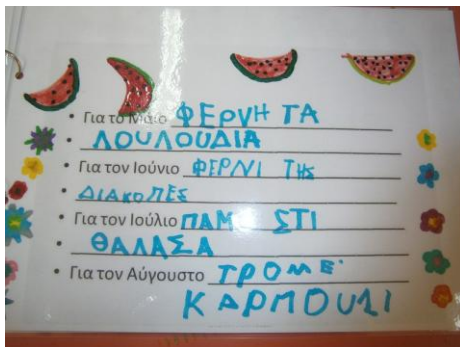 • Για το Μάιο ΦΕΡΝΗ ΤΑ
• ΛΟΥΛΟΥΔΙΑ
• Για τον Ιούνιο ΦΕΡΝΙ ΤΗς
• ΔΙΑΚΟΠΕΣ
• Για τον Ιούλιο ΠΑΜΕ ΣΤΙ
• ΘΑΛΑΣΑ
• Για τον Αύγουστο ΤΡΟΜΕ
ΚΑΡΠΟΥΖΙ